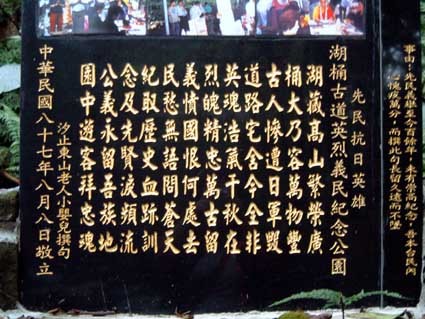 事由:先民義舉至今百餘年未有崇高紀念吾本台民內
心愧疚萬分而撰此句長留久遠而不墜
先民抗日英雄
湖桶古道英烈義民紀念公園
湖藏高山繁榮廣
桶大乃容萬物豐
古人慘遭日軍毀
道路宅舍今全非
英魂浩氣千秋在
烈魄精忠萬古留
義憤國恨何處去
民愁無語問蒼天
紀取歷史血跡訓
念及先賢淚頻流
公義永留吾族地
園中遊客拜忠魂
汐止東山老人小嬰兒撰句
中華民國八十七年八月八日敬立